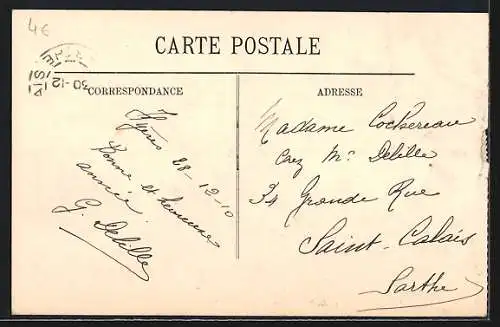 4€
30-12
CARTE POSTALE
CORRESPONDANCE
ADRESSE
Hyères 28-12-10
Bonne et heureuse
année
G. Delille
Madame Cochereau
Chez Mr Delille
34 Grande Rue
Saint-Calais
Sarthe